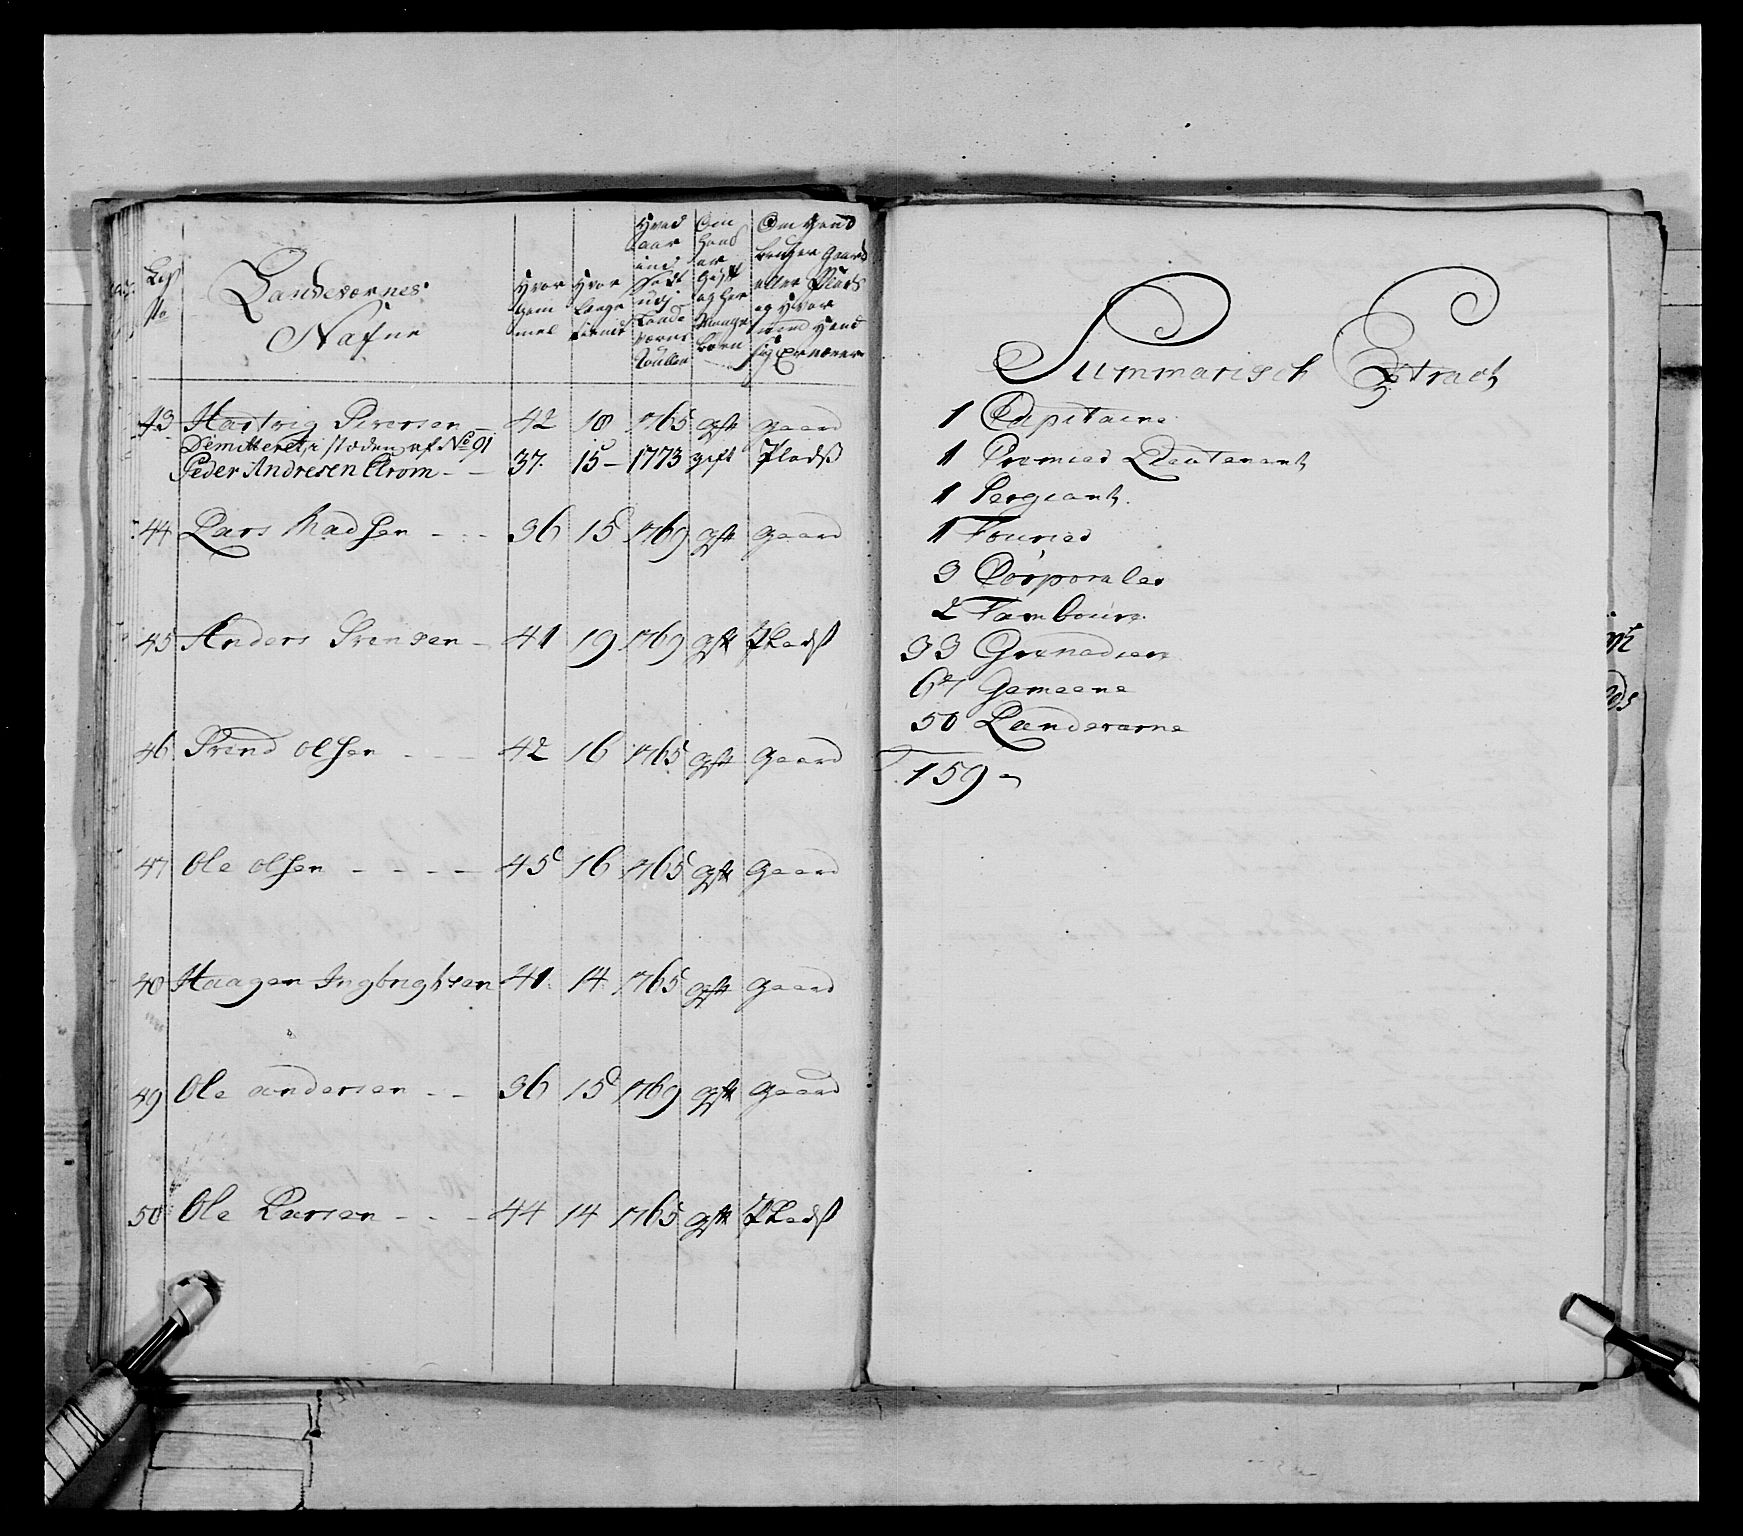 Landeværnes
Nafne
Hvor
gam
mel
Hvor
længe
tient
Hvad
aar
ind
Sadt
udj
Lande
værns
Roullen
Om
hand
er
Gift
og hor
Mange
børn
Om hand
bruger gaard
eller Plads
og Hvor
med hand
sig Ernærer
43 Hartvig Siversen - 42 18 1765 gift gaard
Dimitteret, i stæden af No 91
Peder Andresen Elrom - - 37. 15 - 1773 gift Pladß
44 Lars Madsen - - - 36 15 1769 gift gaard
45 Anders Svensen - 41 19 1769 gift Pladß
46 Svend Olsen - - - 42 16 1765 gift gaard
47 Ole Olsen - - - - 45 16 1765 gift gaard
48 Haagen Ingbrigtsen 41. 14 1765 gift gaard
49 Ole andersen - - 36 15 1769 gift gaard
50 Ole Larsen - - - 44 14 1765 gift Pladß
Summarisch Extract
1 Capitaine
1 Premier Lieutenant
1 Sergeant.
1 Fourier
3 Corporaler
2 Tambours
33 Grenadier
67 Gemeene
50 Landeværne
159